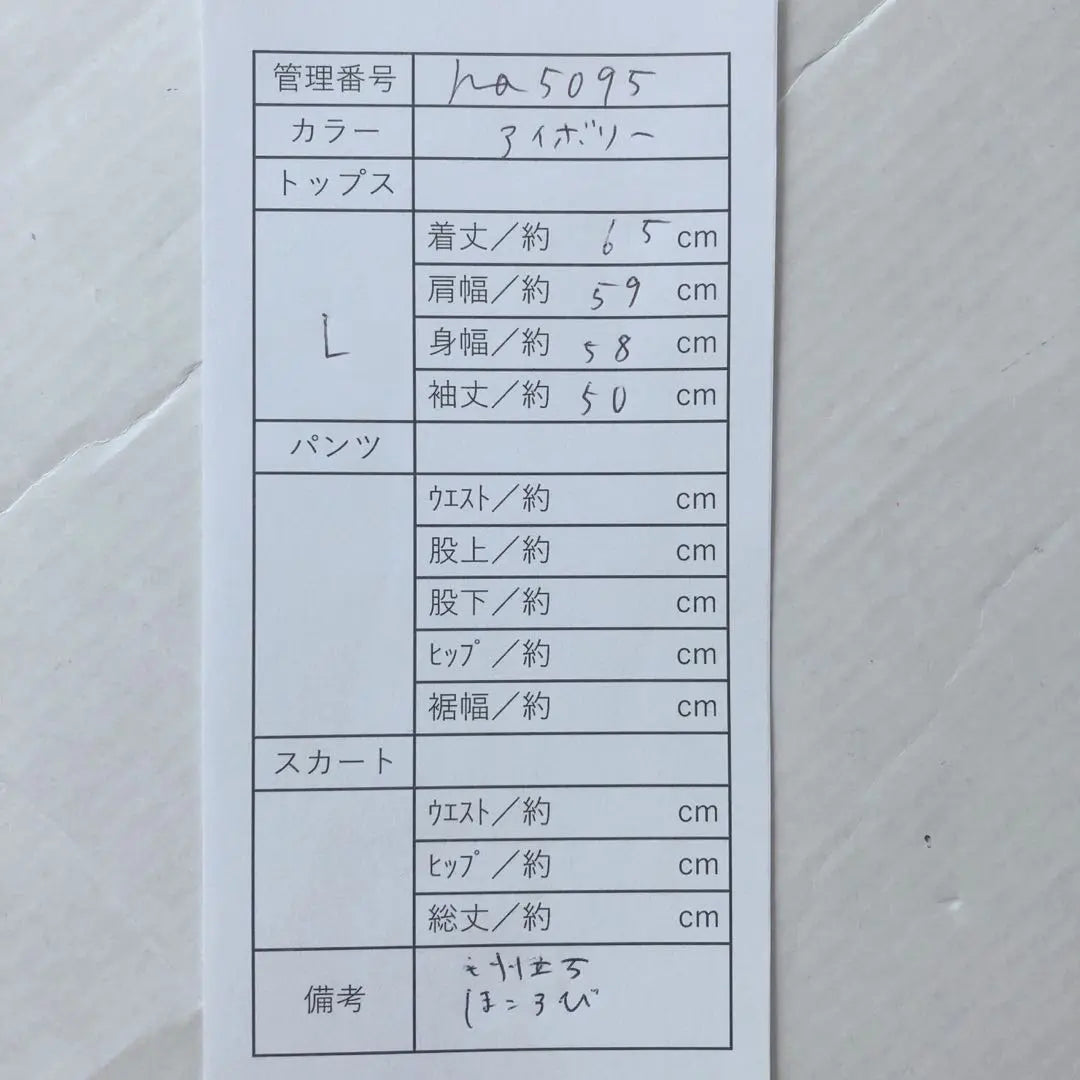 管理番号 ha5095
カラー アイボリー
トップス
L
着丈／約 65 cm
肩幅／約 59 cm
身幅／約 58 cm
袖丈／約 50 cm
パンツ
ｳｴｽﾄ／約 cm
股上／約 cm
股下／約 cm
ﾋｯﾌﾟ／約 cm
裾幅／約 cm
スカート
ｳｴｽﾄ／約 cm
ﾋｯﾌﾟ／約 cm
総丈／約 cm
備考
ほころび